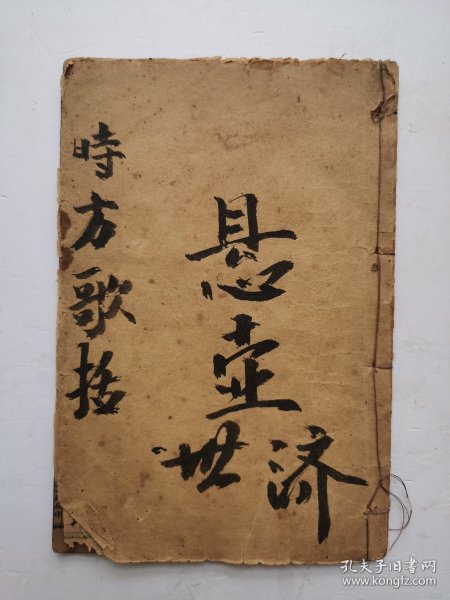 時方歌括
悬壶
济世
孔夫子旧书网
www.kongfz.com